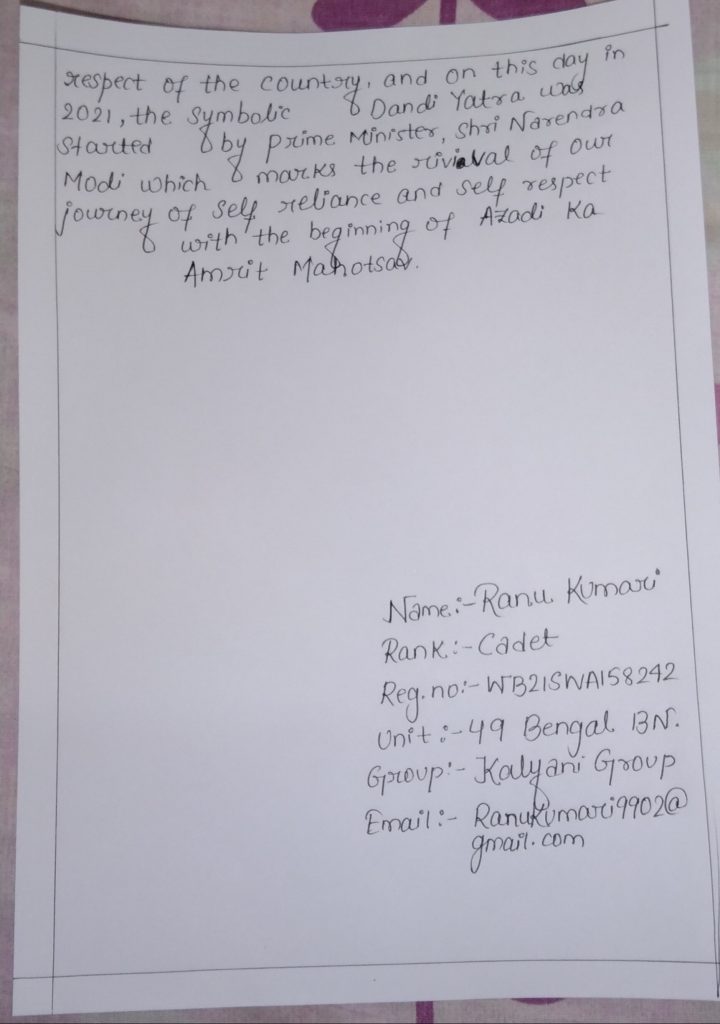 respect of the country, and on this day in
2021, the symbolic Dandi Yatra was
started by prime Minister, Shri Narendra
Modi which marks the rivival of our
journey of self reliance and self respect
with the beginning of Azadi Ka
Amrit Mahotsav.
Name:- Ranu Kumari
Rank:- Cadet
Reg. no:- WB21SWA158242
Unit:- 49 Bengal BN.
Group:- Kalyani Group
Email:- Ranukumari9902@
gmail.com